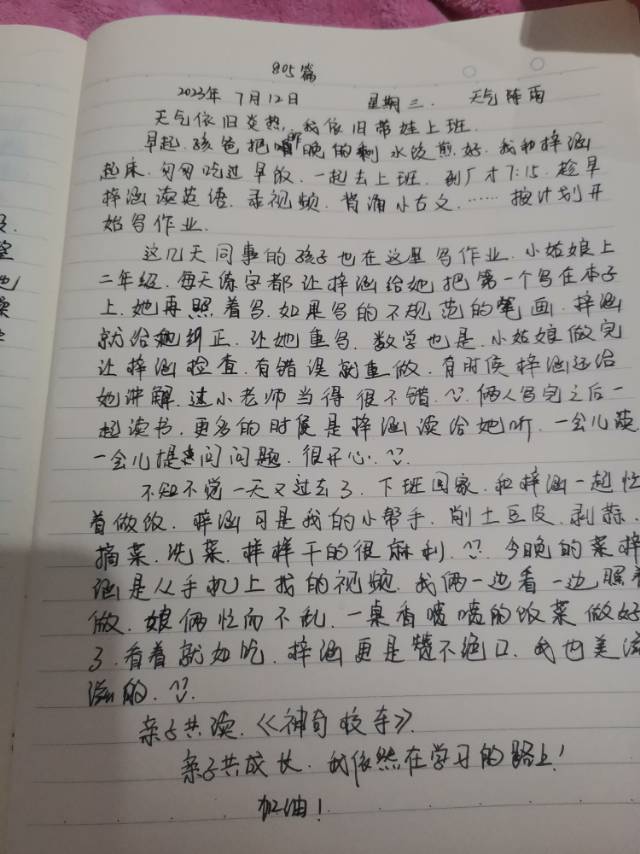 805篇
2023年 7月12日 星期三. 天气 阵雨
天气依旧炎热, 我依旧带娃上班.
早起. 孩爸把昨晚的剩水饺煎好. 我和梓涵
起床. 匆匆吃过早饭. 一起去上班. 到厂才7:15. 趁早
梓涵读英语. 录视频. 背诵小古文. …… 按计划开
始写作业.
这几天同事的孩子也在这里写作业. 小姑娘上
二年级. 每天练字都让梓涵给她把第一个写在本子
上. 她再照着写. 如果写的不规范的笔画. 梓涵
就给她纠正. 让她重写. 数学也是. 小姑娘做完
让梓涵检查. 有错误就重做. 有时侯梓涵还给
她讲解. 这小老师当得很不错. 俩人写完之后一
起读书. 更多的时候是梓涵读给她听. 一会儿读.
一会儿提问问题. 很开心.
不知不觉一天又过去了. 下班回家. 和梓涵一起忙
着做饭. 梓涵可是我的小帮手. 削土豆皮. 剥蒜.
摘菜. 洗菜. 样样干的很麻利. 今晚的菜梓
涵是从手机上找的视频. 我俩一边看一边照着
做. 娘俩忙而不乱. 一桌香喷喷的饭菜做好
了. 看着就好吃. 梓涵更是赞不绝口. 我也美滋
滋的.
亲子共读. 《神奇校车》.
亲子共成长. 我依然在学习的路上!
加油!